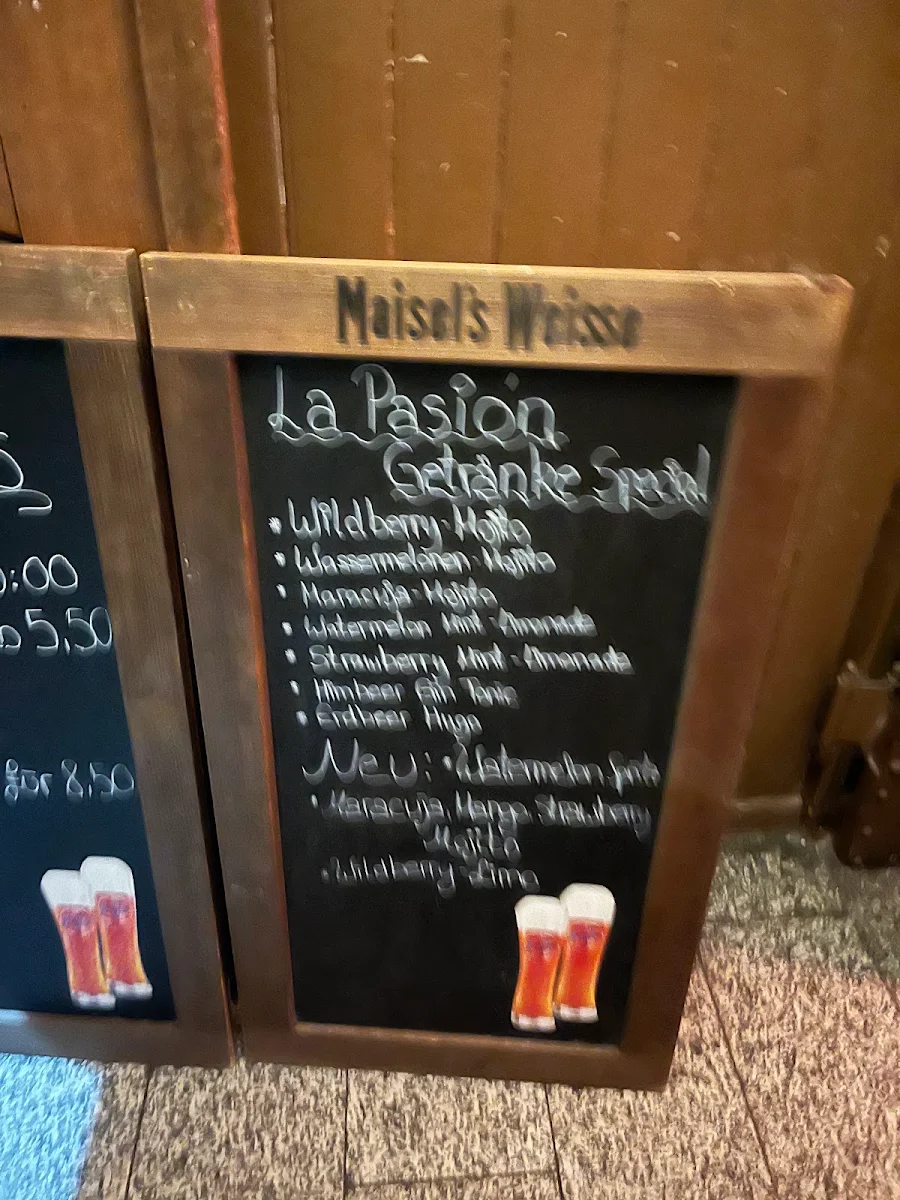 Maisel's Weisse
La Pasión
Getränke Special
• Wildberry-Mojito
• Wassermelonen-Mojito
• Maracuja-Mojito
• Watermelon Mint-Limonade
• Strawberry Mint-Limonade
• Himbeer Gin Tonic
• Erdbeer Hugo
Neu: • Watermelon
• Maracuja, Mango, Strawberry
Mojito
• Wildberry-Limo
:00
5,50
für 8,50